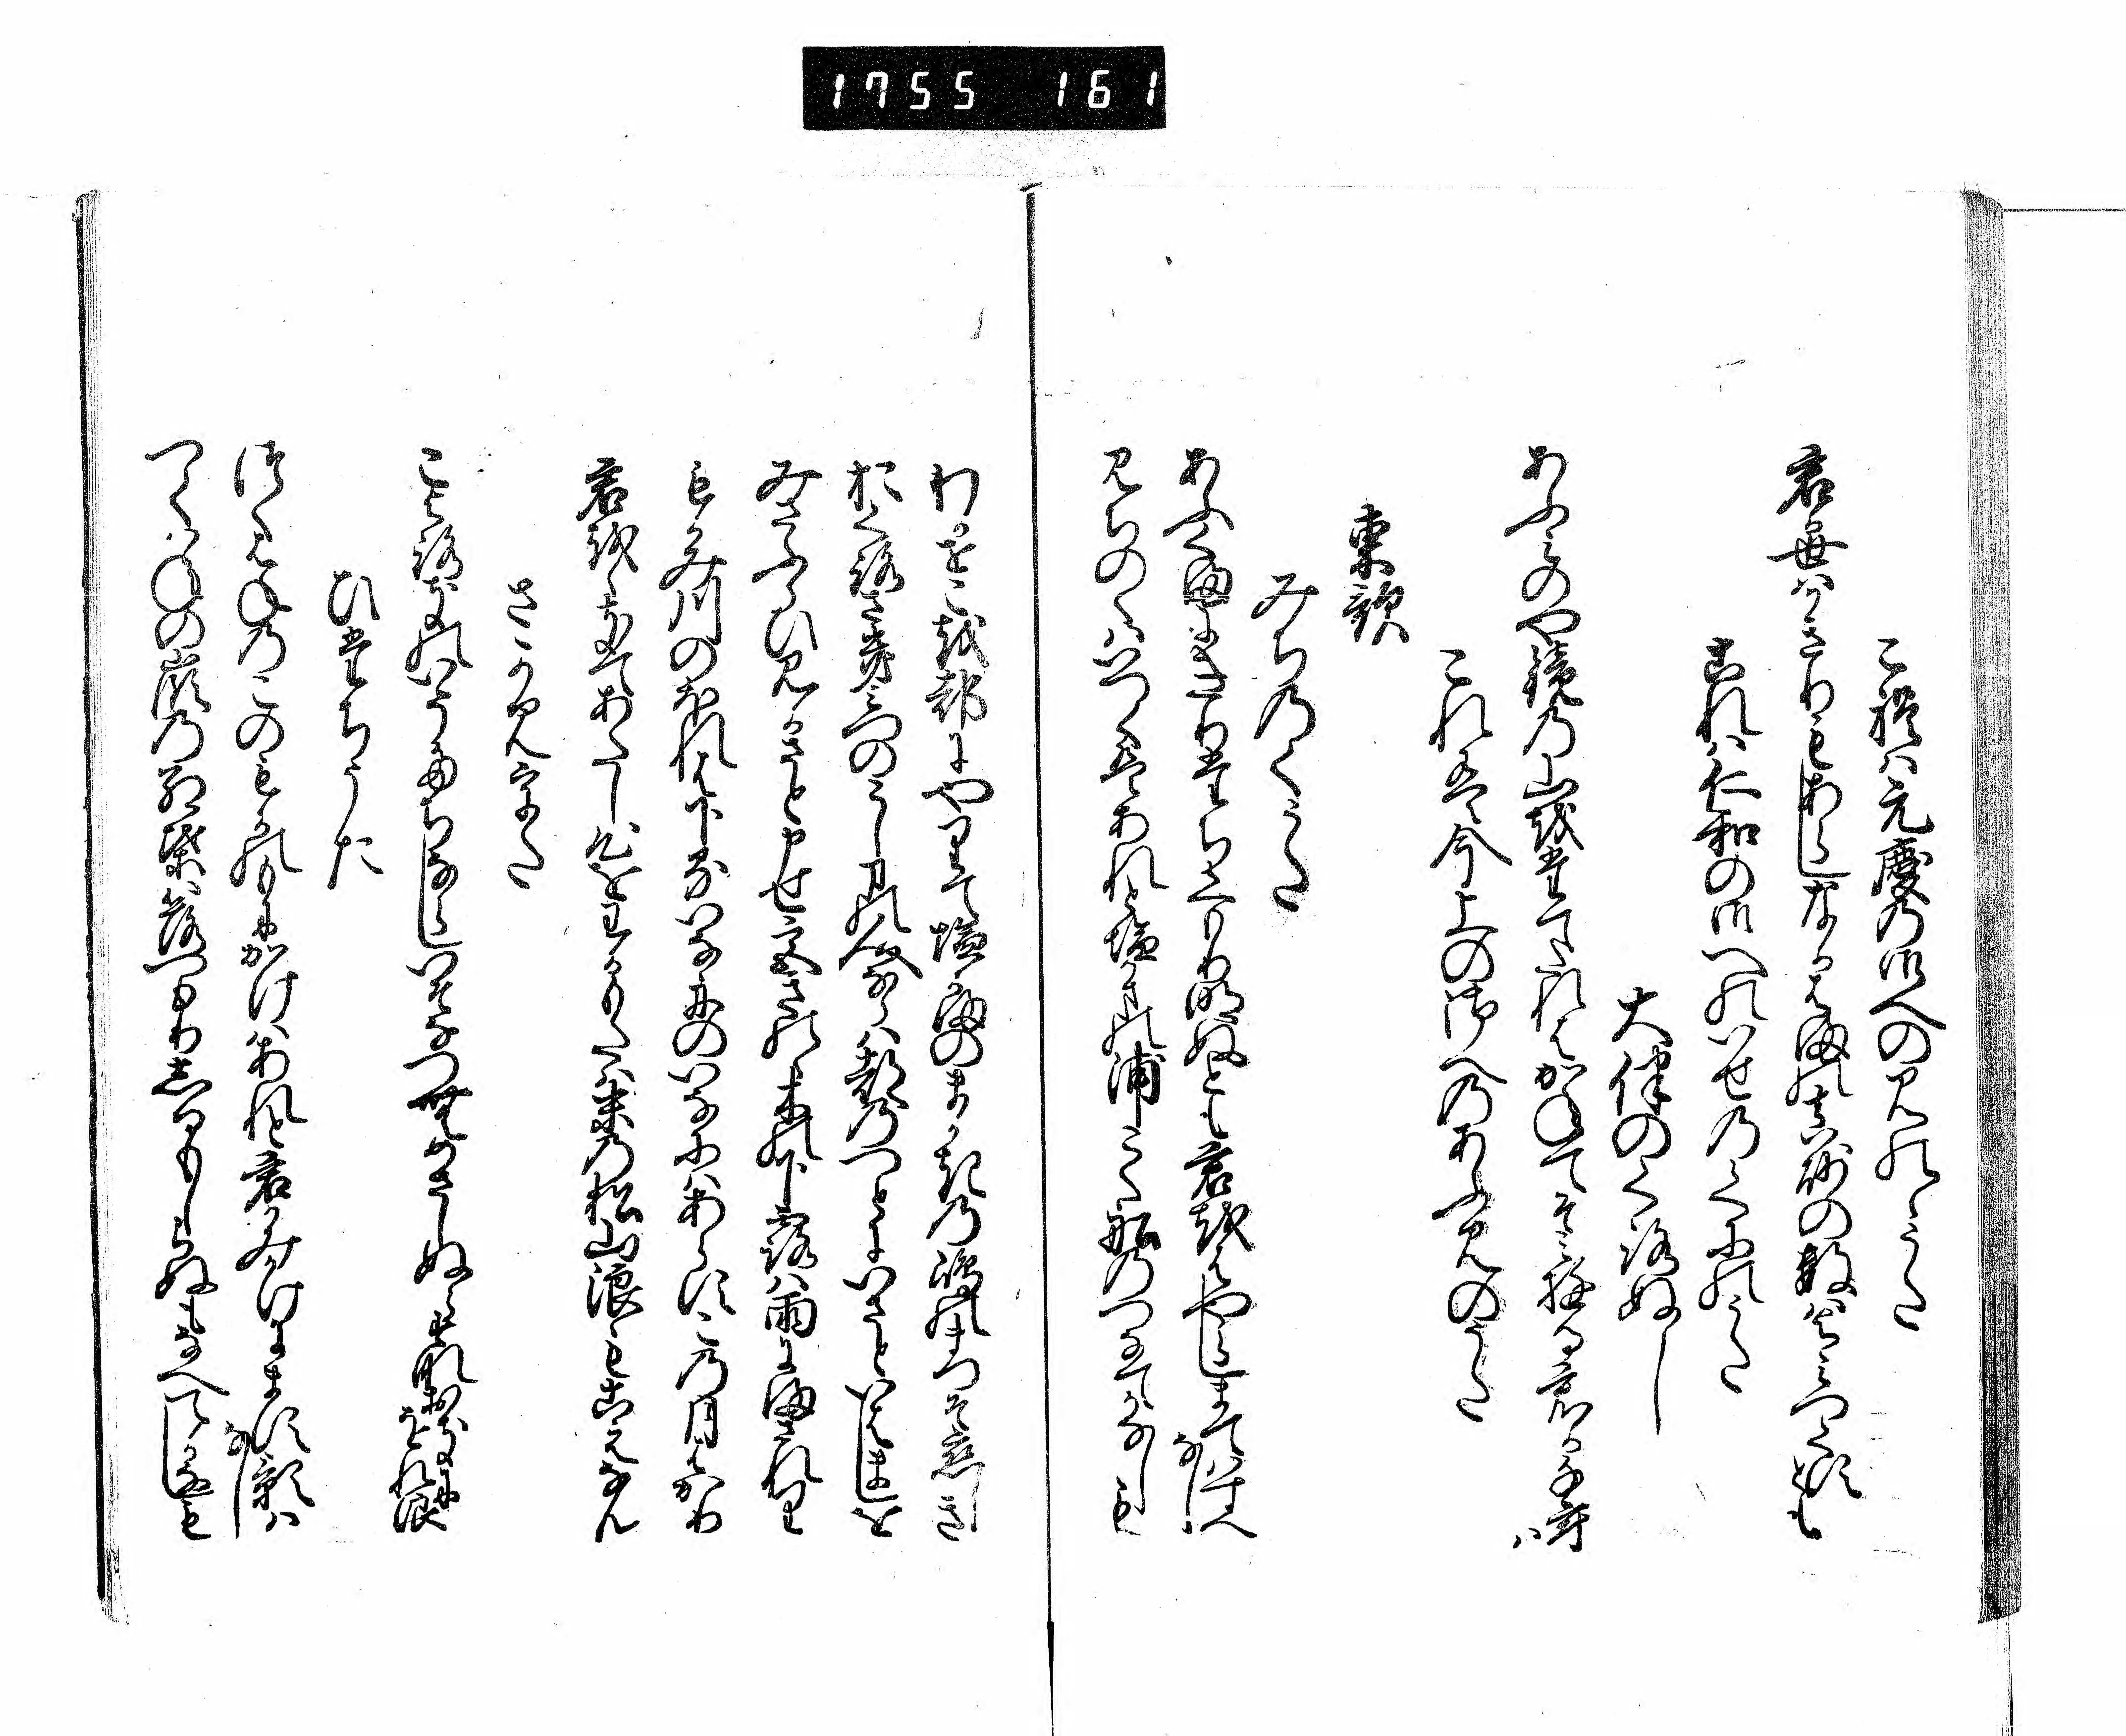 1755 161
これは元慶の御へのみのゝうた
君か世はかきりもあらしなかはまのま砂の数はよみつくすとも
これは仁和の御へのいせのくにのうた
大伴のくろぬし
あふみのや鏡の山をたてたれはかねてそみゆる君か千年は
これは今上の御へのあふみのうた
東歌
みちのくうた
あふくまにきりたちくもり明ぬとも君をはやらしまてはすへなし
みちのくはいつくはあれと塩かまの浦こく舟のつなてかなしも
わかせこを都にやりて塩かまのまかきの嶋の松そ恋しき
おくろさきみつのこしまの人ならは都のつとにいさといはましを
みさふらひみかさと申せ宮きのゝ木の下露は雨にまされり
もかみ川のほれは下るいな舟のいなにはあらすこの月はかり
君をゝきてあたし心をわかもたは末の松山浪もこえなん
さかみうた
こよろきのいそたちならしいそなつむめさしぬらすなおきにをれ浪
ひたちうた
つくはねのこのもかのもにかけはあれと君かみかけにます影はなし
つくはねの嶺のもみち葉落つもりしるもしらぬもなへてかなしも